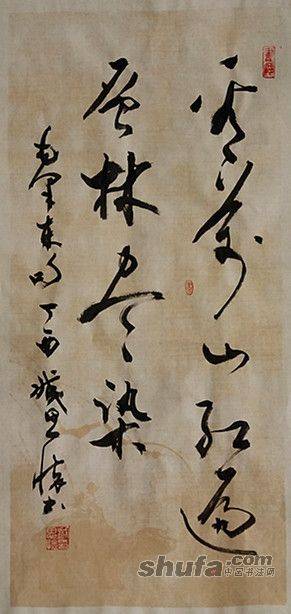 看萬山红遍
层林尽染
毛泽东 丁酉 书
shufa.com
中国书法网